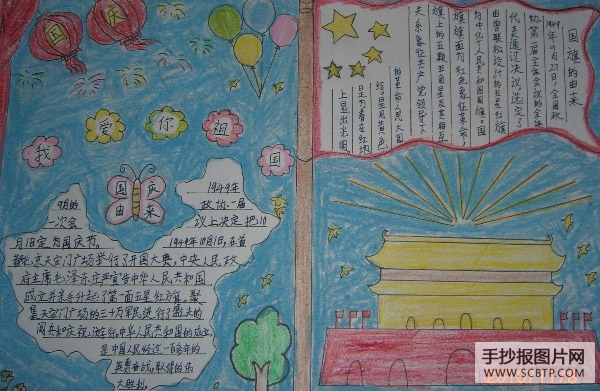 国庆
我爱你祖国
国庆
由来
1949年
9月的 政协一届
一次会 议上决定把10
月1日定为国庆节。1949年10月1日,在首
都北京天安门广场举行了开国大典,中央人民政
府主席毛泽东庄严宣告中华人民共和国
成立并亲手升起了第一面五星红旗。聚
集天安门广场的三十万军民进行了盛大的
阅兵和庆祝游行。中华人民共和国的成立,
是中国人民经过一百多年的
英勇奋战,取得的伟
大胜利
国旗的由来
1949年9月27日,全国政
协第一届全体会议的全体
代表通过决议,选定了
由曾联松设计的五星红旗
为中华人民共和国国旗。国
旗旗面为红色象征革命,
旗上的五颗五角星及其相互
关系象征共产党领导下
的革命人民大团
结。星用黄色
是为着在红地
上显出光明。
手抄报图片网
WWW.SCBTP.COM